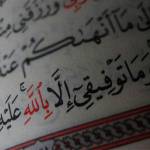 وَرَزَقَنِي
مَآ أَنْهَىٰكُمْ عَنْهُ
وَمَا تَوْفِيقِىٓ إِلَّا بِٱللَّهِ ۚ عَلَيْهِ